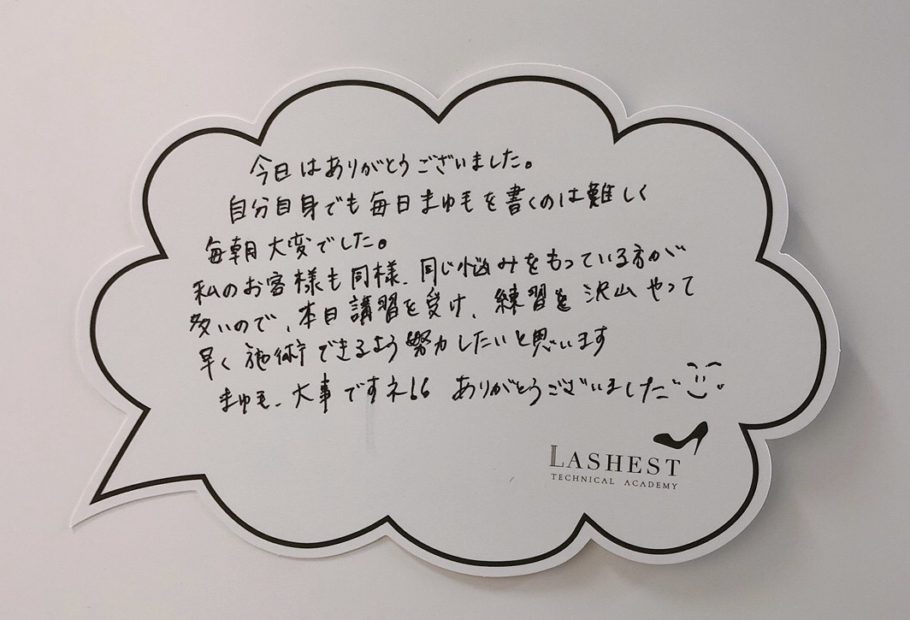 今日はありがとうございました。
自分自身でも毎日まゆ毛を書くのは難しく
毎朝大変でした。
私のお客様も同様、同じ悩みをもっている方が
多いので、本日講習を受け、練習を沢山やって
早く施術できるよう努力したいと思います
まゆ毛、大事ですネ!! ありがとうございました
LASHEST
TECHNICAL ACADEMY